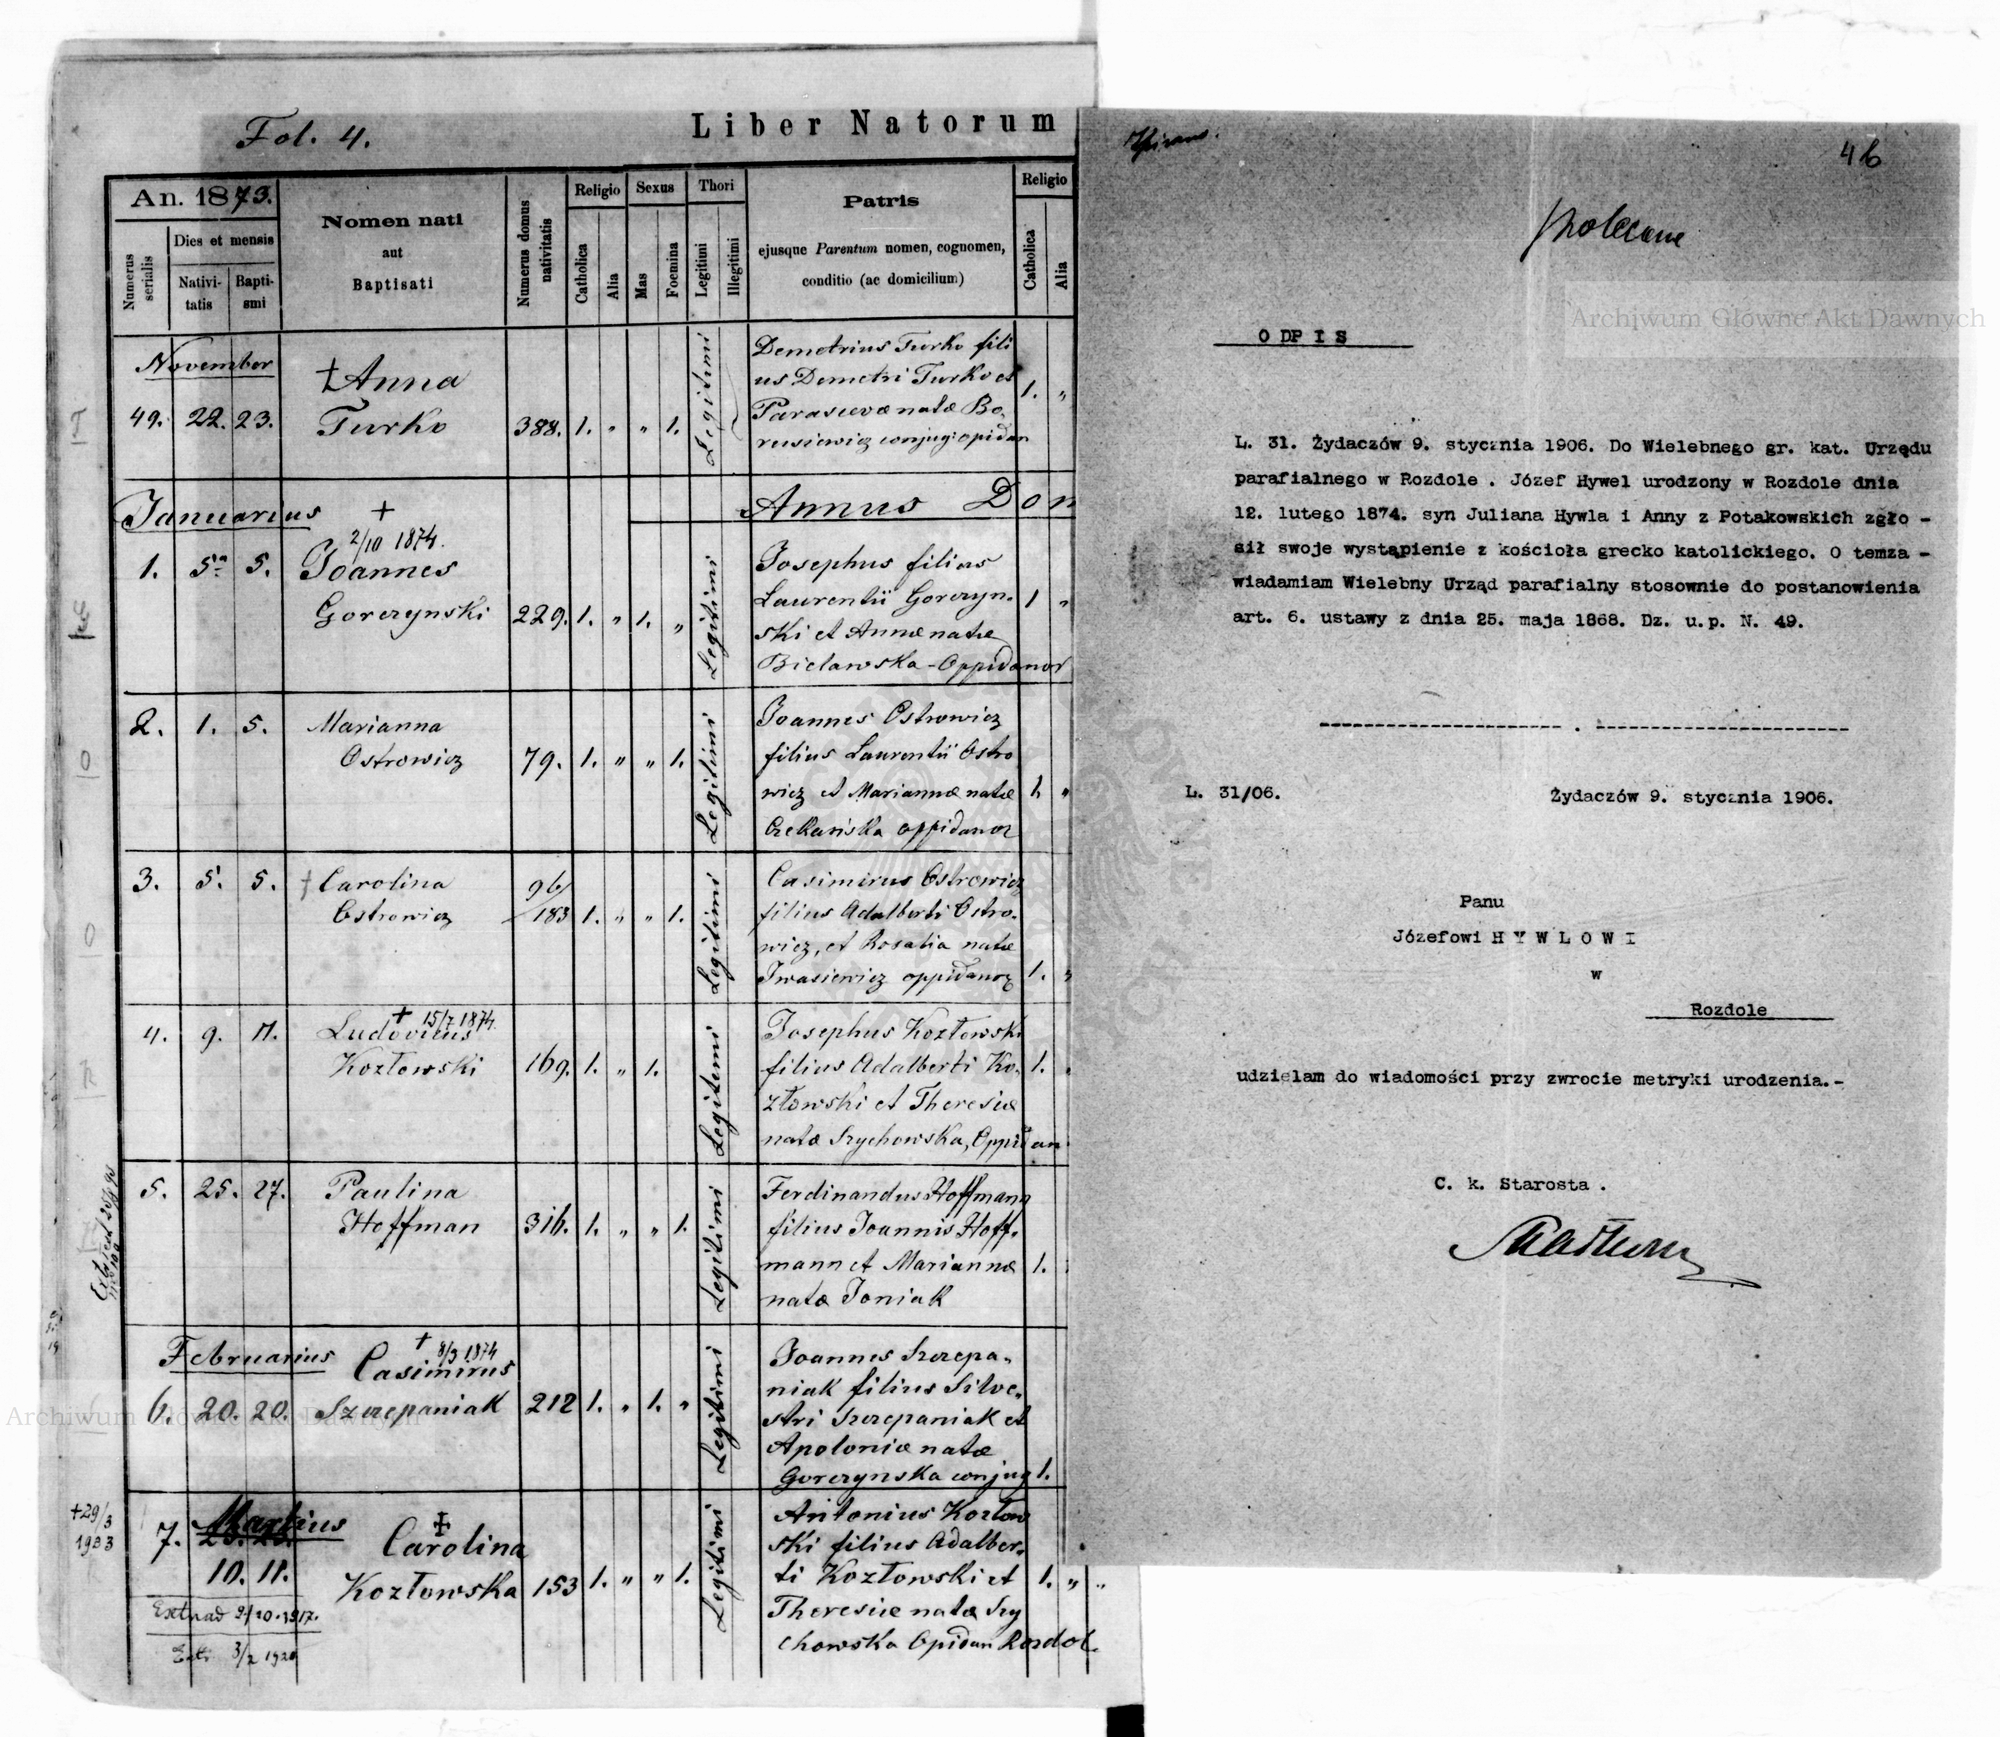 Fol. 4.
Liber Natorum
An. 1873.
Numerus serialis
Dies et mensis
Nativi-
tatis
Bapti-
smi
Nomen nati
aut
Baptisati
Numerus domus
nativitatis
Religio
Catholica
Alia
Sexus
Mas
Foemina
Thori
Legitimi
Illegitimi
Patris
ejusque Parentum nomen, cognomen,
conditio (ac domicilium)
Religio
Catholica
Alia
November
49. 22. 23.
† Anna
Turko
388. 1. „ „ 1.
Legitimi
Demetrius Turko fili
us Demetri Turko et
Parascevæ natæ Bo-
rusiewicz conjug: opidan
1. „
Januarius
Annus Dom
†
2/10 1874.
1. 5. 5.
Joannes
Gorczynski
229. 1. „ 1. „
Legitimi
Josephus filius
Laurentii Gorczyn-
ski et Annæ natæ
Bielawska - Oppidanor
1 „
2. 1. 5.
Marianna
Ostrowicz
79. 1. „ „ 1.
Legitimi
Joannes Ostrowicz
filius Laurentii Ostro
wicz et Mariannæ natæ
Czekańska oppidanor
1. „
3. 5. 5.
† Carolina
Ostrowicz
96/
183 1. „ „ 1.
Legitimi
Casimirus Ostrowicz
filius Adalberti Ostro-
wicz, et Rosalia natæ
Iwasiewicz oppidanor
1. „
† 15/7 1874.
4. 9. 11.
Ludovicus
Kozłowski
169. 1. „ 1.
Legitemi
Josephus Kozłowski
filius Adalberti Ko-
złowski et Theresiæ
natæ Szychowska, Oppidan
1. „
5. 25. 27.
Paulina
Hoffman
316. 1. „ „ 1.
Legitimi
Ferdinandus Hoffmann
filius Joannis Hoff-
mann et Mariannæ
natæ Joniak
1.
Februarius
† 8/3 1874
Casimirus
6. 20. 20.
Szczepaniak
212 1. „ 1. „
Legitimi
Joannes Szczepa-
niak filius Silve-
stri Szczepaniak et
Apoloniæ natæ
Gorczynska conjug
1.
+29/3
1933
Martius
7.
10. 11.
‡
Carolina
Kozłowska
153 1. „ „ 1.
Legitimi
Antonius Kozłow
ski filius Adalber-
ti Kozłowski et
Theresiæ natæ Szy
chowska Opidan Rozdol.
1. „ „
3/2 1920
46
ODPIS
L. 31. Żydaczów 9. stycznia 1906. Do Wielebnego gr. kat. Urzędu
parafialnego w Rozdole . Józef Hywel urodzony w Rozdole dnia
12. lutego 1874. syn Juliana Hywla i Anny z Potakowskich zgło -
sił swoje wystąpienie z kościoła grecko katolickiego. O temza -
wiadamiam Wielebny Urząd parafialny stosownie do postanowienia
art. 6. ustawy z dnia 25. maja 1868. Dz. u.p. N. 49.
------------------------ . -------------------------
L. 31/06.
Żydaczów 9. stycznia 1906.
Panu
Józefowi HYWLOWI
w
Rozdole
udzielam do wiadomości przy zwrocie metryki urodzenia.-
C. k. Starosta .
Archiwum Główne Akt Dawnych
Archiwum Główne Akt Dawnych